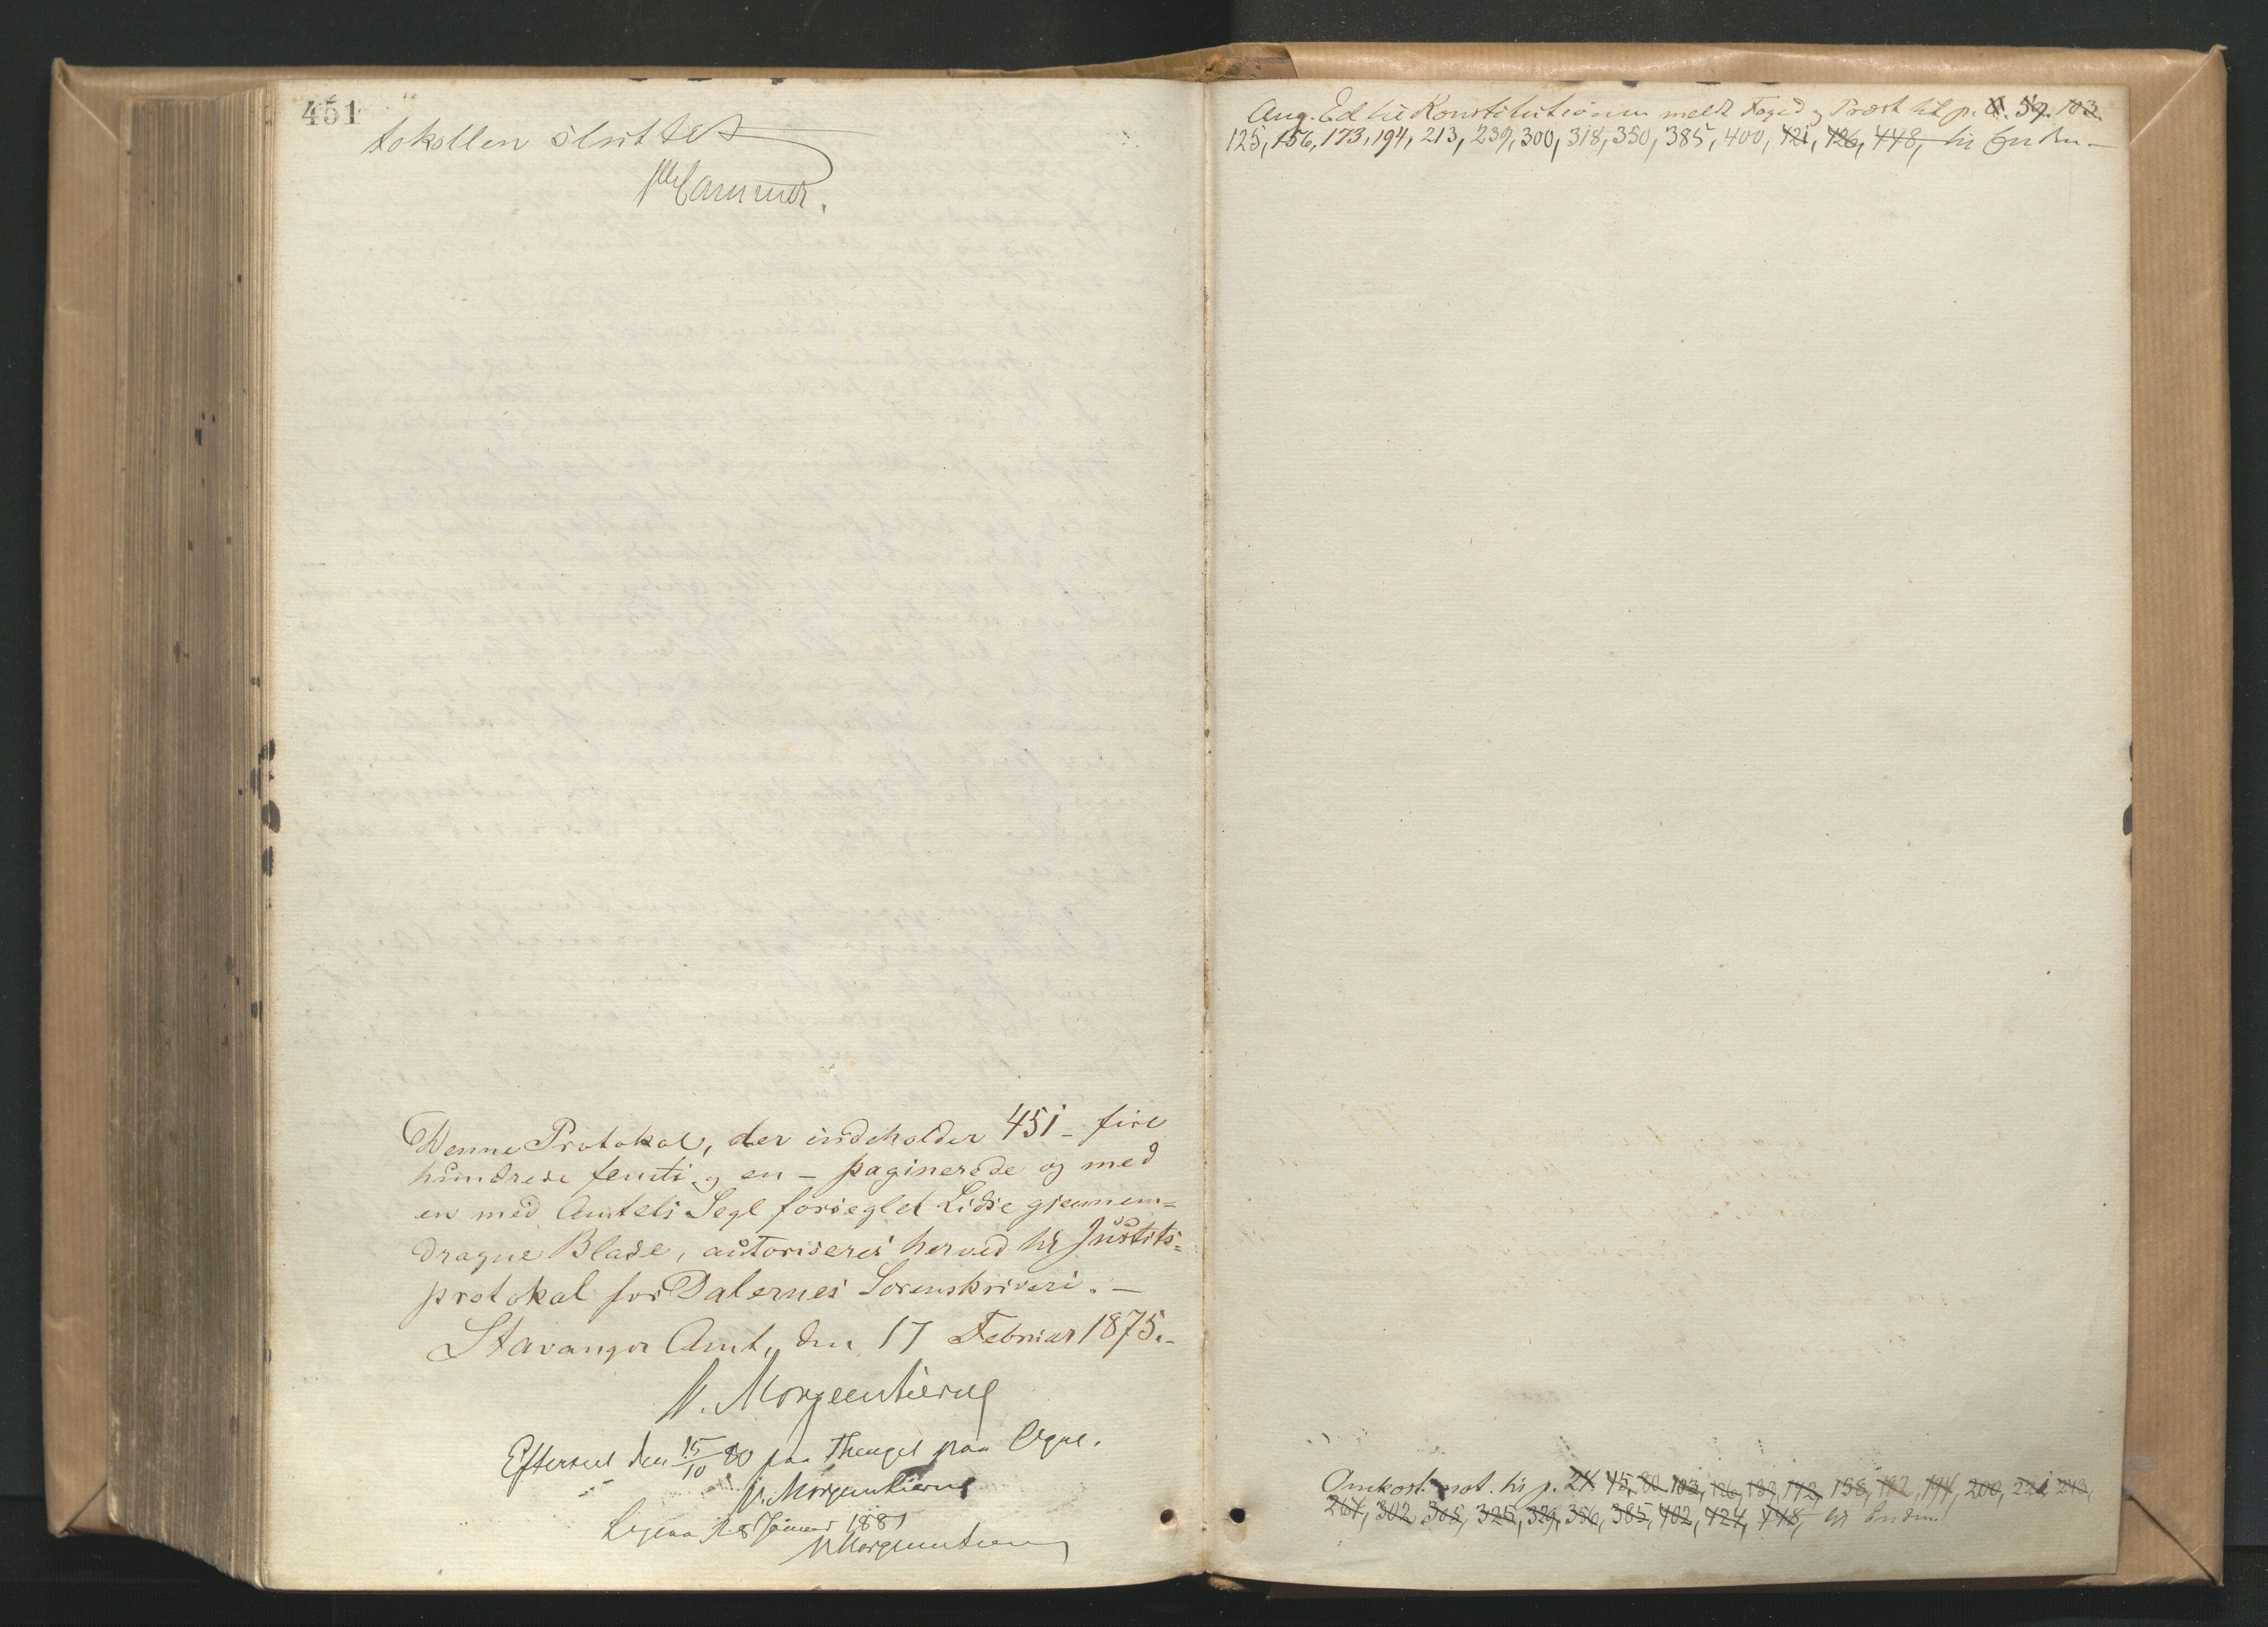 451
tokollen sluttet
Hammer.
Denne Protokol, der indeholder 451 - fire
hundrede femti og en - paginerede og med
en med Amtets Segl forseglet Lidse gjennem=
dragne Blade, autoriseres herved til Justits=
protokol for Dalernes Sorenskriveri. -
Stavanger Amt, den 17 Februar 1875. -
V. Morgenstierne
Efterseet den 15/10 80 paa Thinget paa Ogne.
V. Morgenstierne
18 Januar 1881
V Morgenstierne
Aug. Ed til Konstitutionen meldt Foged og Præst til p. 59. 103.
125, 156, 173, 194, 213, 239, 300, 318, 350, 385, 400, 421, 426, 448, til Enden -
Omkost. prot. til p. 24 45, 80 103, 126, 142, 158, 194, 200, 221 243,
264, 302 308, 325, 329, 356, 385, 402, 424, 448, til Enden